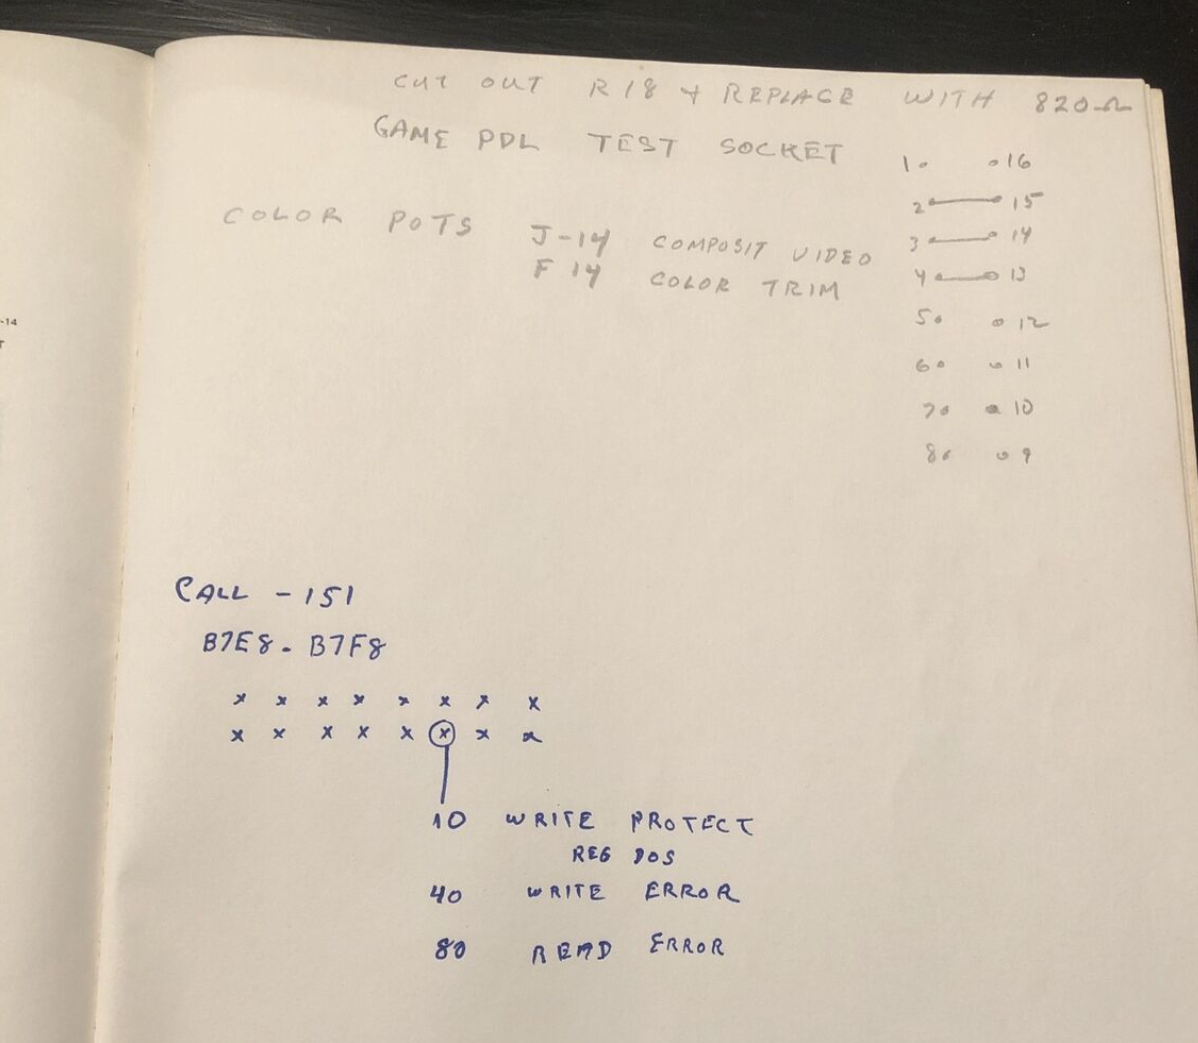 CUT OUT R18 + REPLACE WITH 820Ω
GAME PDL TEST SOCKET
COLOR POTS J-14 COMPOSIT VIDEO
F 14 COLOR TRIM
1 16
2 15
3 14
4 13
5 12
6 11
7 10
8 9
-14
T
CALL -151
B7E8. B7F8
x x x x x x x x
x x x x x x x x
10 WRITE PROTECT
REG DOS
40 WRITE ERROR
80 READ ERROR